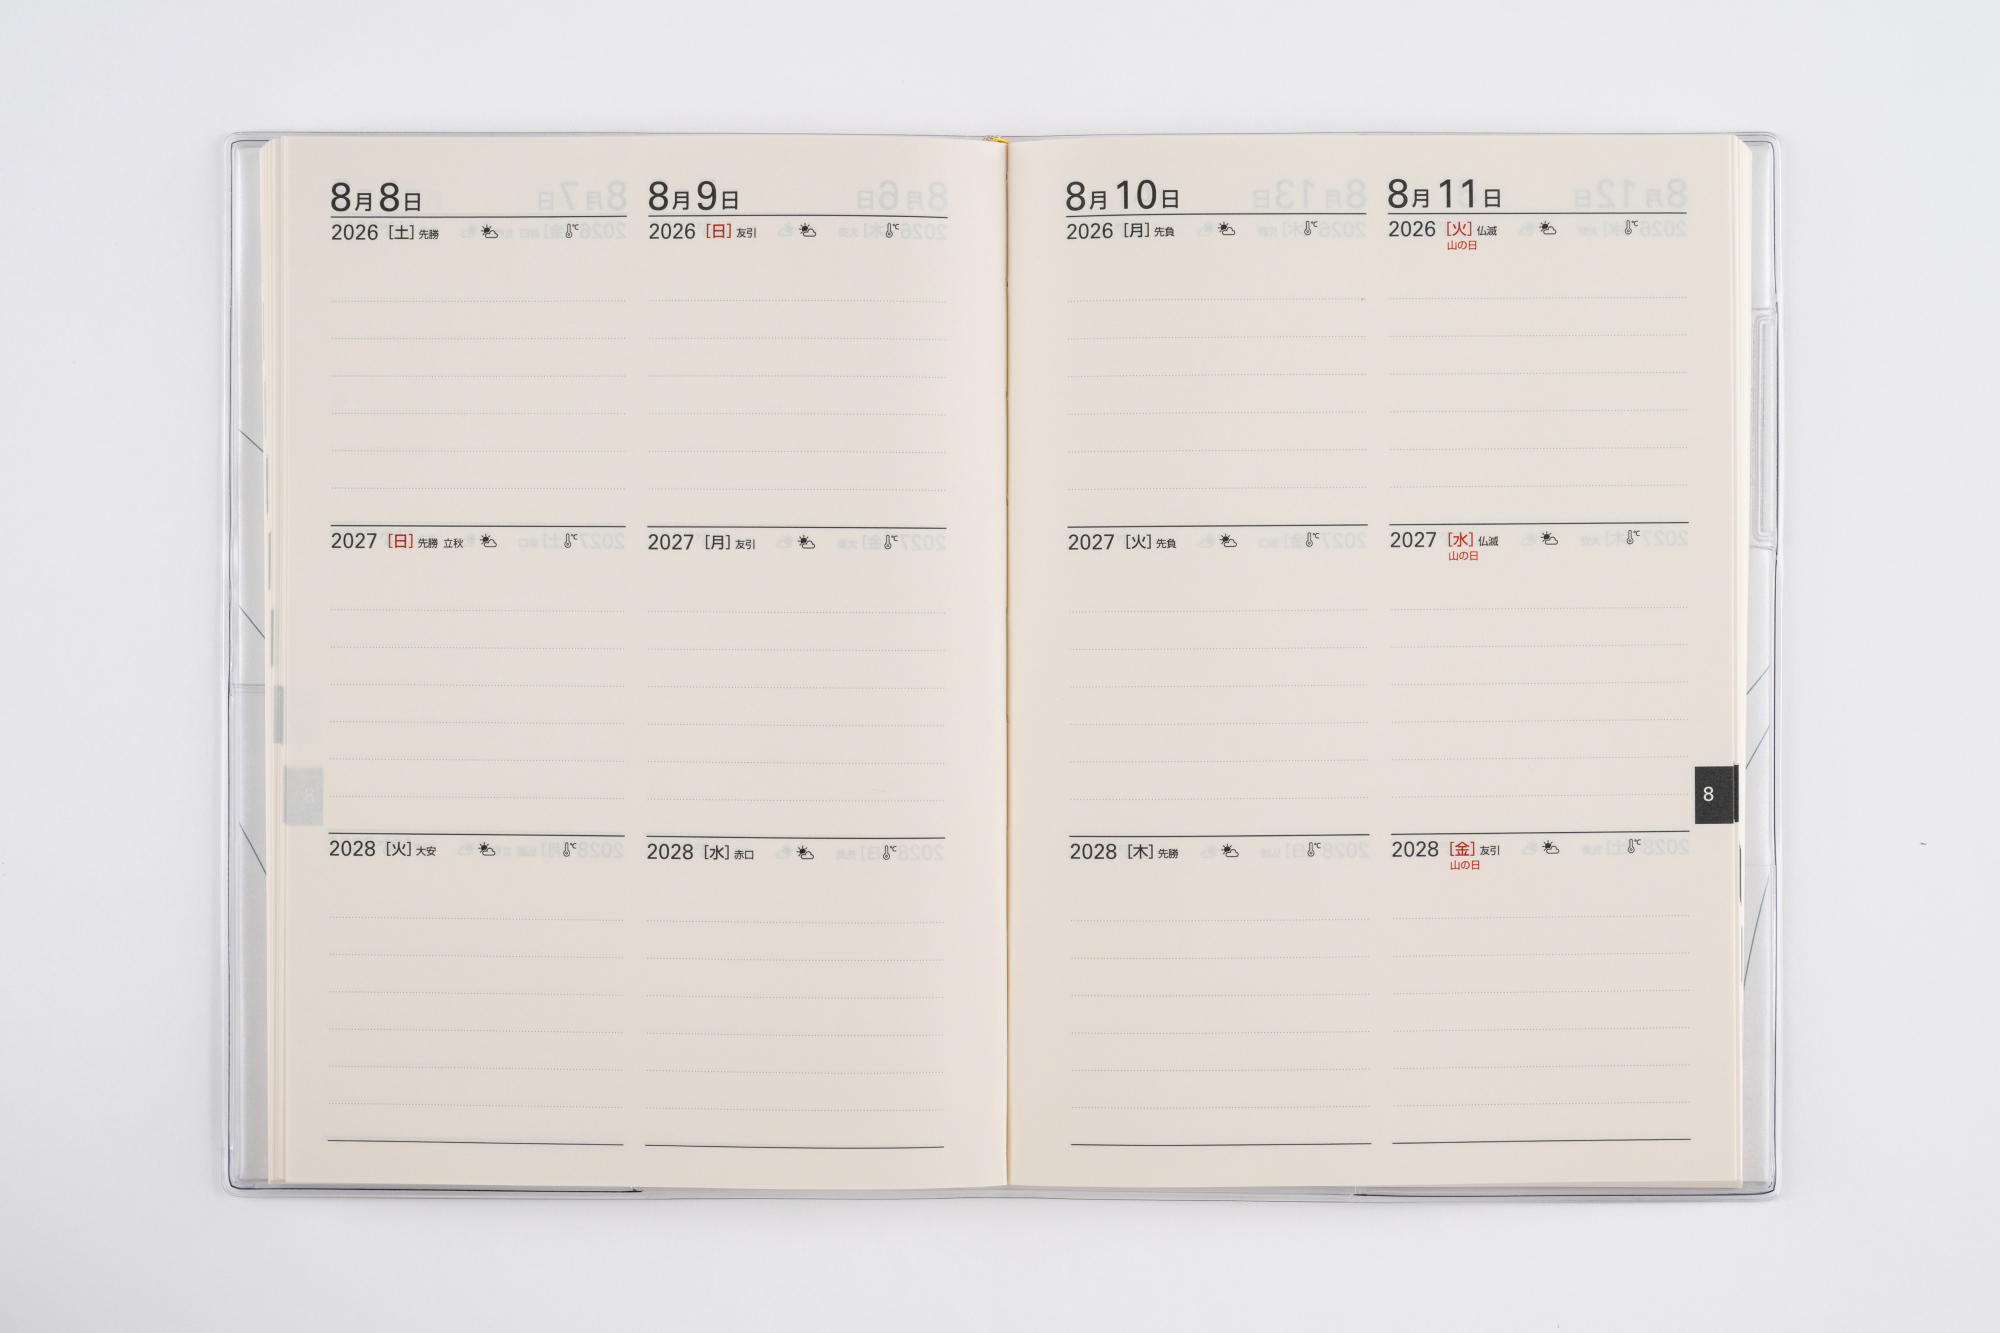 8月8日
2026 [土] 先勝 ℃
2027 [日] 先勝 立秋 ℃
2028 [火] 大安 ℃
8月9日
2026 [日] 友引 ℃
2027 [月] 友引 ℃
2028 [水] 赤口 ℃
8月10日
2026 [月] 先負 ℃
2027 [火] 先負 ℃
2028 [木] 先勝 ℃
8月11日
2026 [火] 仏滅 ℃
山の日
2027 [水] 仏滅 ℃
山の日
2028 [金] 友引 ℃
山の日
8